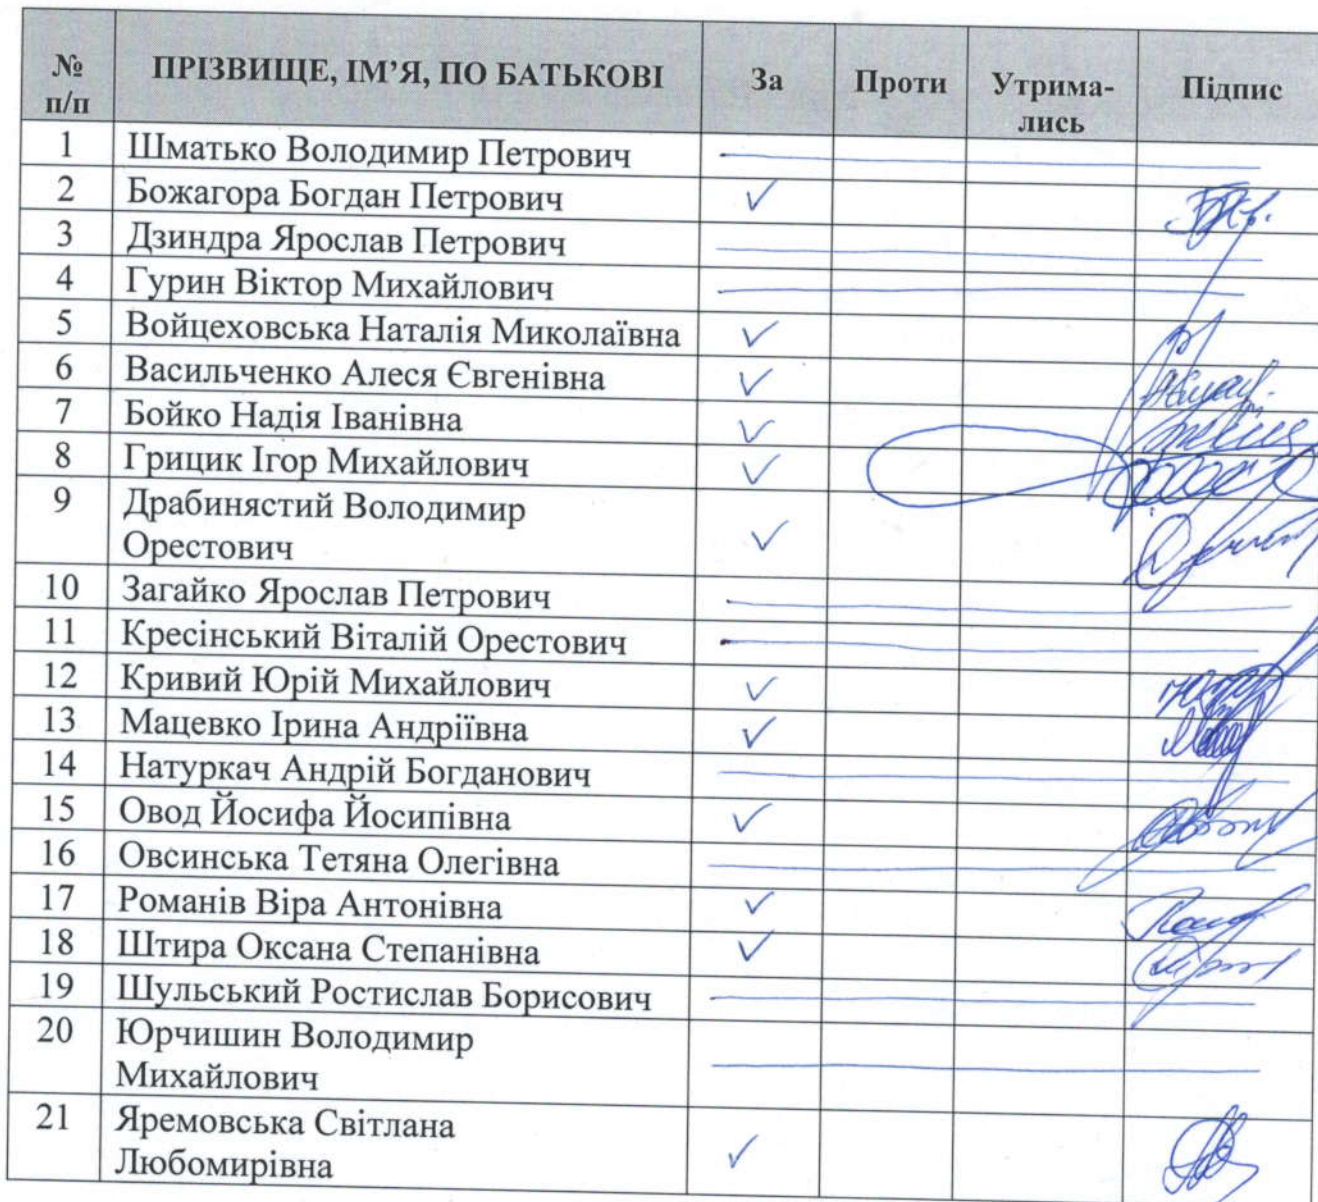 № п/п ПРІЗВИЩЕ, ІМ’Я, ПО БАТЬКОВІ За Проти Утрима-лись Підпис
1 Шматько Володимир Петрович
2 Божагора Богдан Петрович ✓
3 Дзиндра Ярослав Петрович
4 Гурин Віктор Михайлович
5 Войцеховська Наталія Миколаївна ✓
6 Васильченко Алеся Євгенівна ✓
7 Бойко Надія Іванівна ✓
8 Грицик Ігор Михайлович ✓
9 Драбинястий Володимир
Орестович ✓
10 Загайко Ярослав Петрович
11 Кресінський Віталій Орестович
12 Кривий Юрій Михайлович ✓
13 Мацевко Ірина Андріївна ✓
14 Натуркач Андрій Богданович
15 Овод Йосифа Йосипівна ✓
16 Овсинська Тетяна Олегівна
17 Романів Віра Антонівна ✓
18 Штира Оксана Степанівна ✓
19 Шульський Ростислав Борисович
20 Юрчишин Володимир
Михайлович
21 Яремовська Світлана
Любомирівна ✓